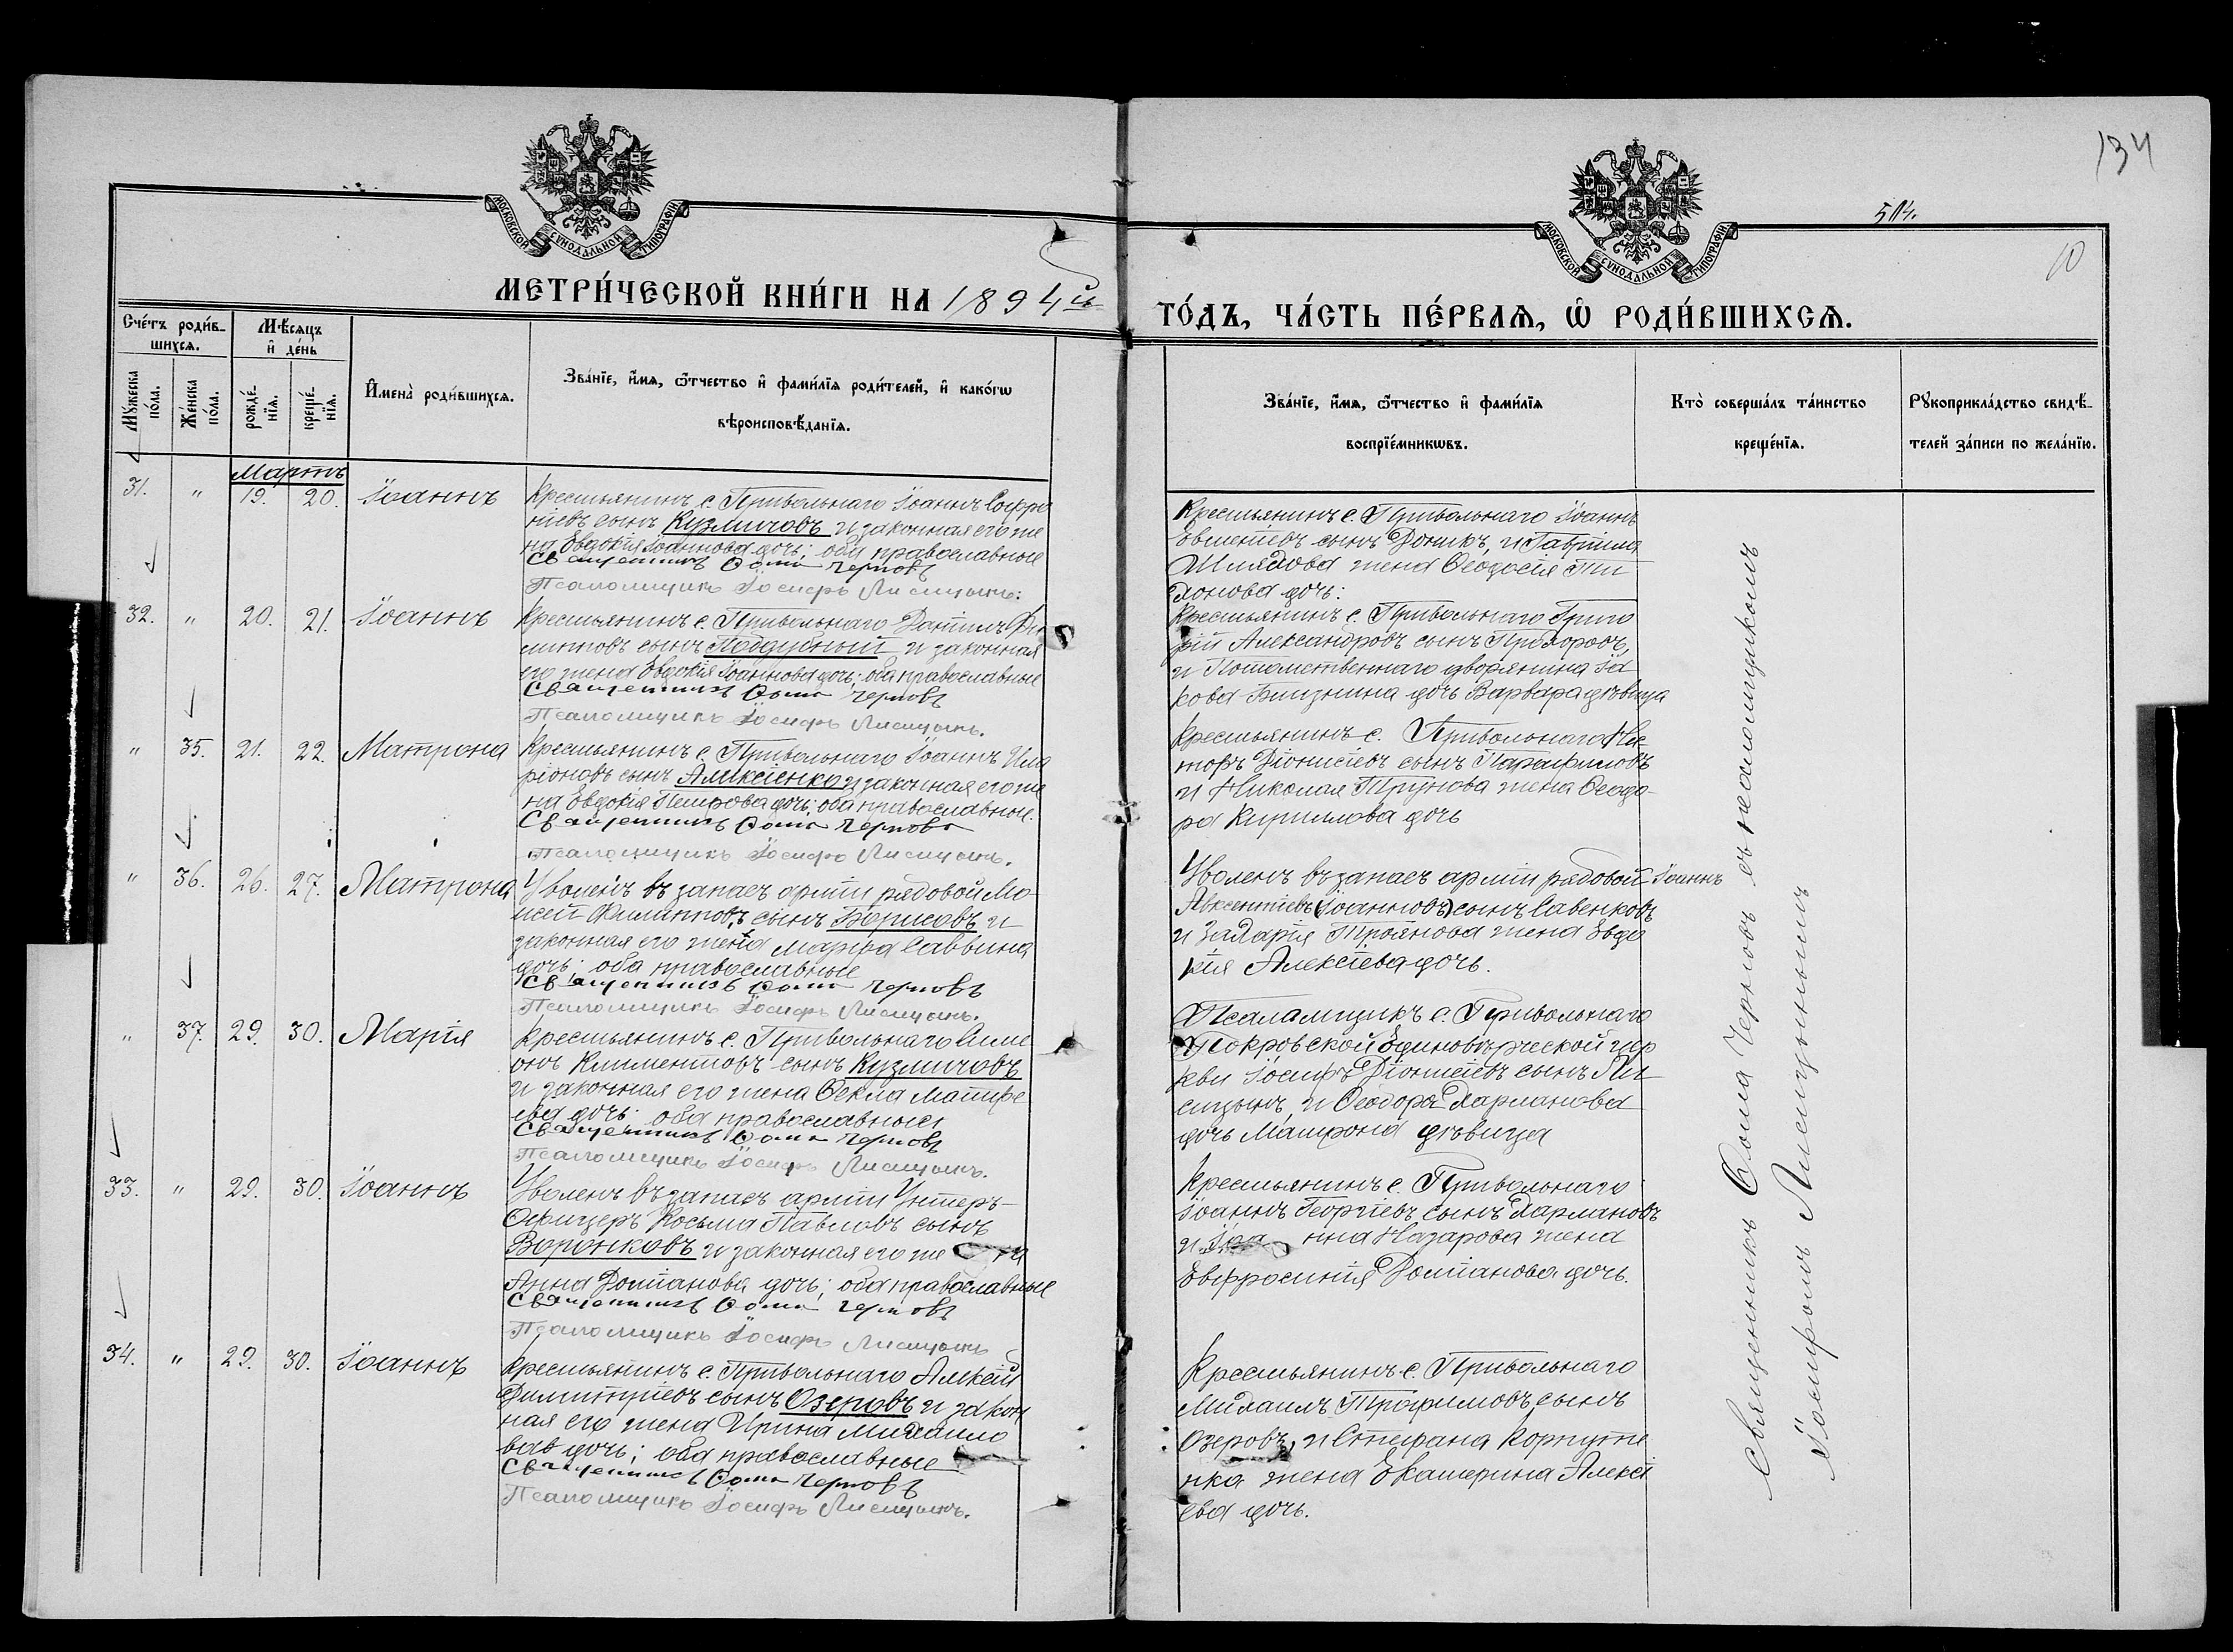 134
504.
10
МОСКОВСКОЙ СѴНОДАЛЬНОЙ ТИПОГРАФІИ
МОСКОВСКОЙ СѴНОДАЛЬНОЙ ТИПОГРАФІИ
МЕТРИ́ЧЕСКОЙ КНИ́ГИ НА 1894 й
ГО́ДЪ, ЧА́СТЬ ПЕ́РВАѦ, Ѡ РОДИ́ВШИХСѦ.
Сче́тъ роди́вшихсѧ.
Мꙋ́жеска по́ла.
Же́нска по́ла.
Мѣ́сѧцъ и҆ де́нь
рожде́нїѧ.
креще́нїѧ.
И҆мена̀ роди́вшихсѧ.
Зва́нїе, и҆́мѧ, ѻ҆́тчество и҆ фами́лїѧ роди́телей, и҆ како́гѡ
вѣроисповѣ́данїѧ.
Зва́нїе, и҆́мѧ, ѻ҆́тчество и҆ фами́лїѧ
воспрїе́мникѡвъ.
Кто̀ соверша́лъ та́инство
креще́нїѧ.
Рꙋкоприкла́дство свидѣ́-
телей за́писи по жела́нїю.
Мартъ
31. " 19. 20. Іоаннъ
Крестьянинъ с. Привольнаго Іоаннъ Софро
ніевъ сынъ Кузмичовъ и законная его же
на Евдокія Іоаннова дочь; оба православные
Священникъ Ѳома Черновъ
Псаломщикъ Іосифъ Лисицынъ.
Крестьянинъ с. Привольнаго Іоаннъ
сынъ и Гавріила
жена Ѳеодосія
дочь:
32. " 20. 21. Іоаннъ
Крестьянинъ с. Привольнаго Даніилъ
сынъ Поддубный и законная
его жена Евдокія Іоаннова дочь; оба православные
Священникъ Ѳома Черновъ
Псаломщикъ Іосифъ Лисицынъ.
Крестьянинъ с. Привольнаго Григо
рій Александровъ сынъ Прохоровъ,
и Потомственнаго дворянина Іа
кова дочь Варвара дѣвица
" 35. 21. 22. Матрона
Крестьянинъ с. Привольнаго Іоаннъ Ила
ріоновъ сынъ Алексіенко и законная его же
на Евдокія Петрова дочь; оба православные.
Священникъ Ѳома Черновъ
Псаломщикъ Іосифъ Лисицынъ.
Крестьянинъ с. Привольнаго Ни-
торъ Діонисіевъ сынъ Парафиловъ
и Николая Трунова жена Ѳеодо-
ра Кириллова дочь
" 36. 26. 27. Матрона
Уволенъ въ запасъ арміи рядовой Мо
исей Филипповъ сынъ Борисовъ и
законная его жена Марѳа Саввина
дочь; оба православные
Священникъ Ѳома Черновъ
Псаломщикъ Іосифъ Лисицынъ.
Уволенъ въ запасъ арміи рядовой Іоаннъ
Авксентіевъ (Іоанновъ) сынъ Савенковъ
и Захарія Троянова жена Евдо
кія Алексіева дочь.
" 37. 29. 30. Марія
Крестьянинъ с. Привольнаго Симе
онъ Климентовъ сынъ Кузмичовъ
и законная его жена Ѳекла Матѳе
ева дочь; оба православные
Священникъ Ѳома Черновъ
Псаломщикъ Іосифъ Лисицынъ.
Псаломщикъ с. Привольнаго
Покровской Единовѣрческой цер
кви Іосифъ Діонисіевъ сынъ Ли
сицынъ, и Ѳеодора Харланова
дочь Матрона дѣвица
33. " 29. 30. Іоаннъ
Уволенъ въ запасъ арміи Унтеръ-
Офицеръ Косьма Павловъ сынъ
Воронковъ и законная его же на
Анна дочь; оба православные
Священникъ Ѳома Черновъ
Псаломщикъ Іосифъ Лисицынъ
Крестьянинъ с. Привольнаго
Іоаннъ Георгіевъ сынъ Харлановъ
и Іоа нна Назарова жена
Евфросинія дочь.
34. " 29. 30. Іоаннъ
Крестьянинъ с. Привольнаго Алексій
Димитріевъ сынъ Озеровъ и закон
ная его жена Ирина Михаило
ва дочь; оба православные
Священникъ Ѳома Черновъ
Псаломщикъ Іосифъ Лисицынъ.
Крестьянинъ с. Привольнаго
Михаилъ Трофимовъ сынъ
Озеровъ, и Стефана Корнуте
нка жена Екатерина Алексі
ева дочь.
Священникъ Ѳома Черновъ съ псаломщикомъ
Іосифомъ Лисицынымъ